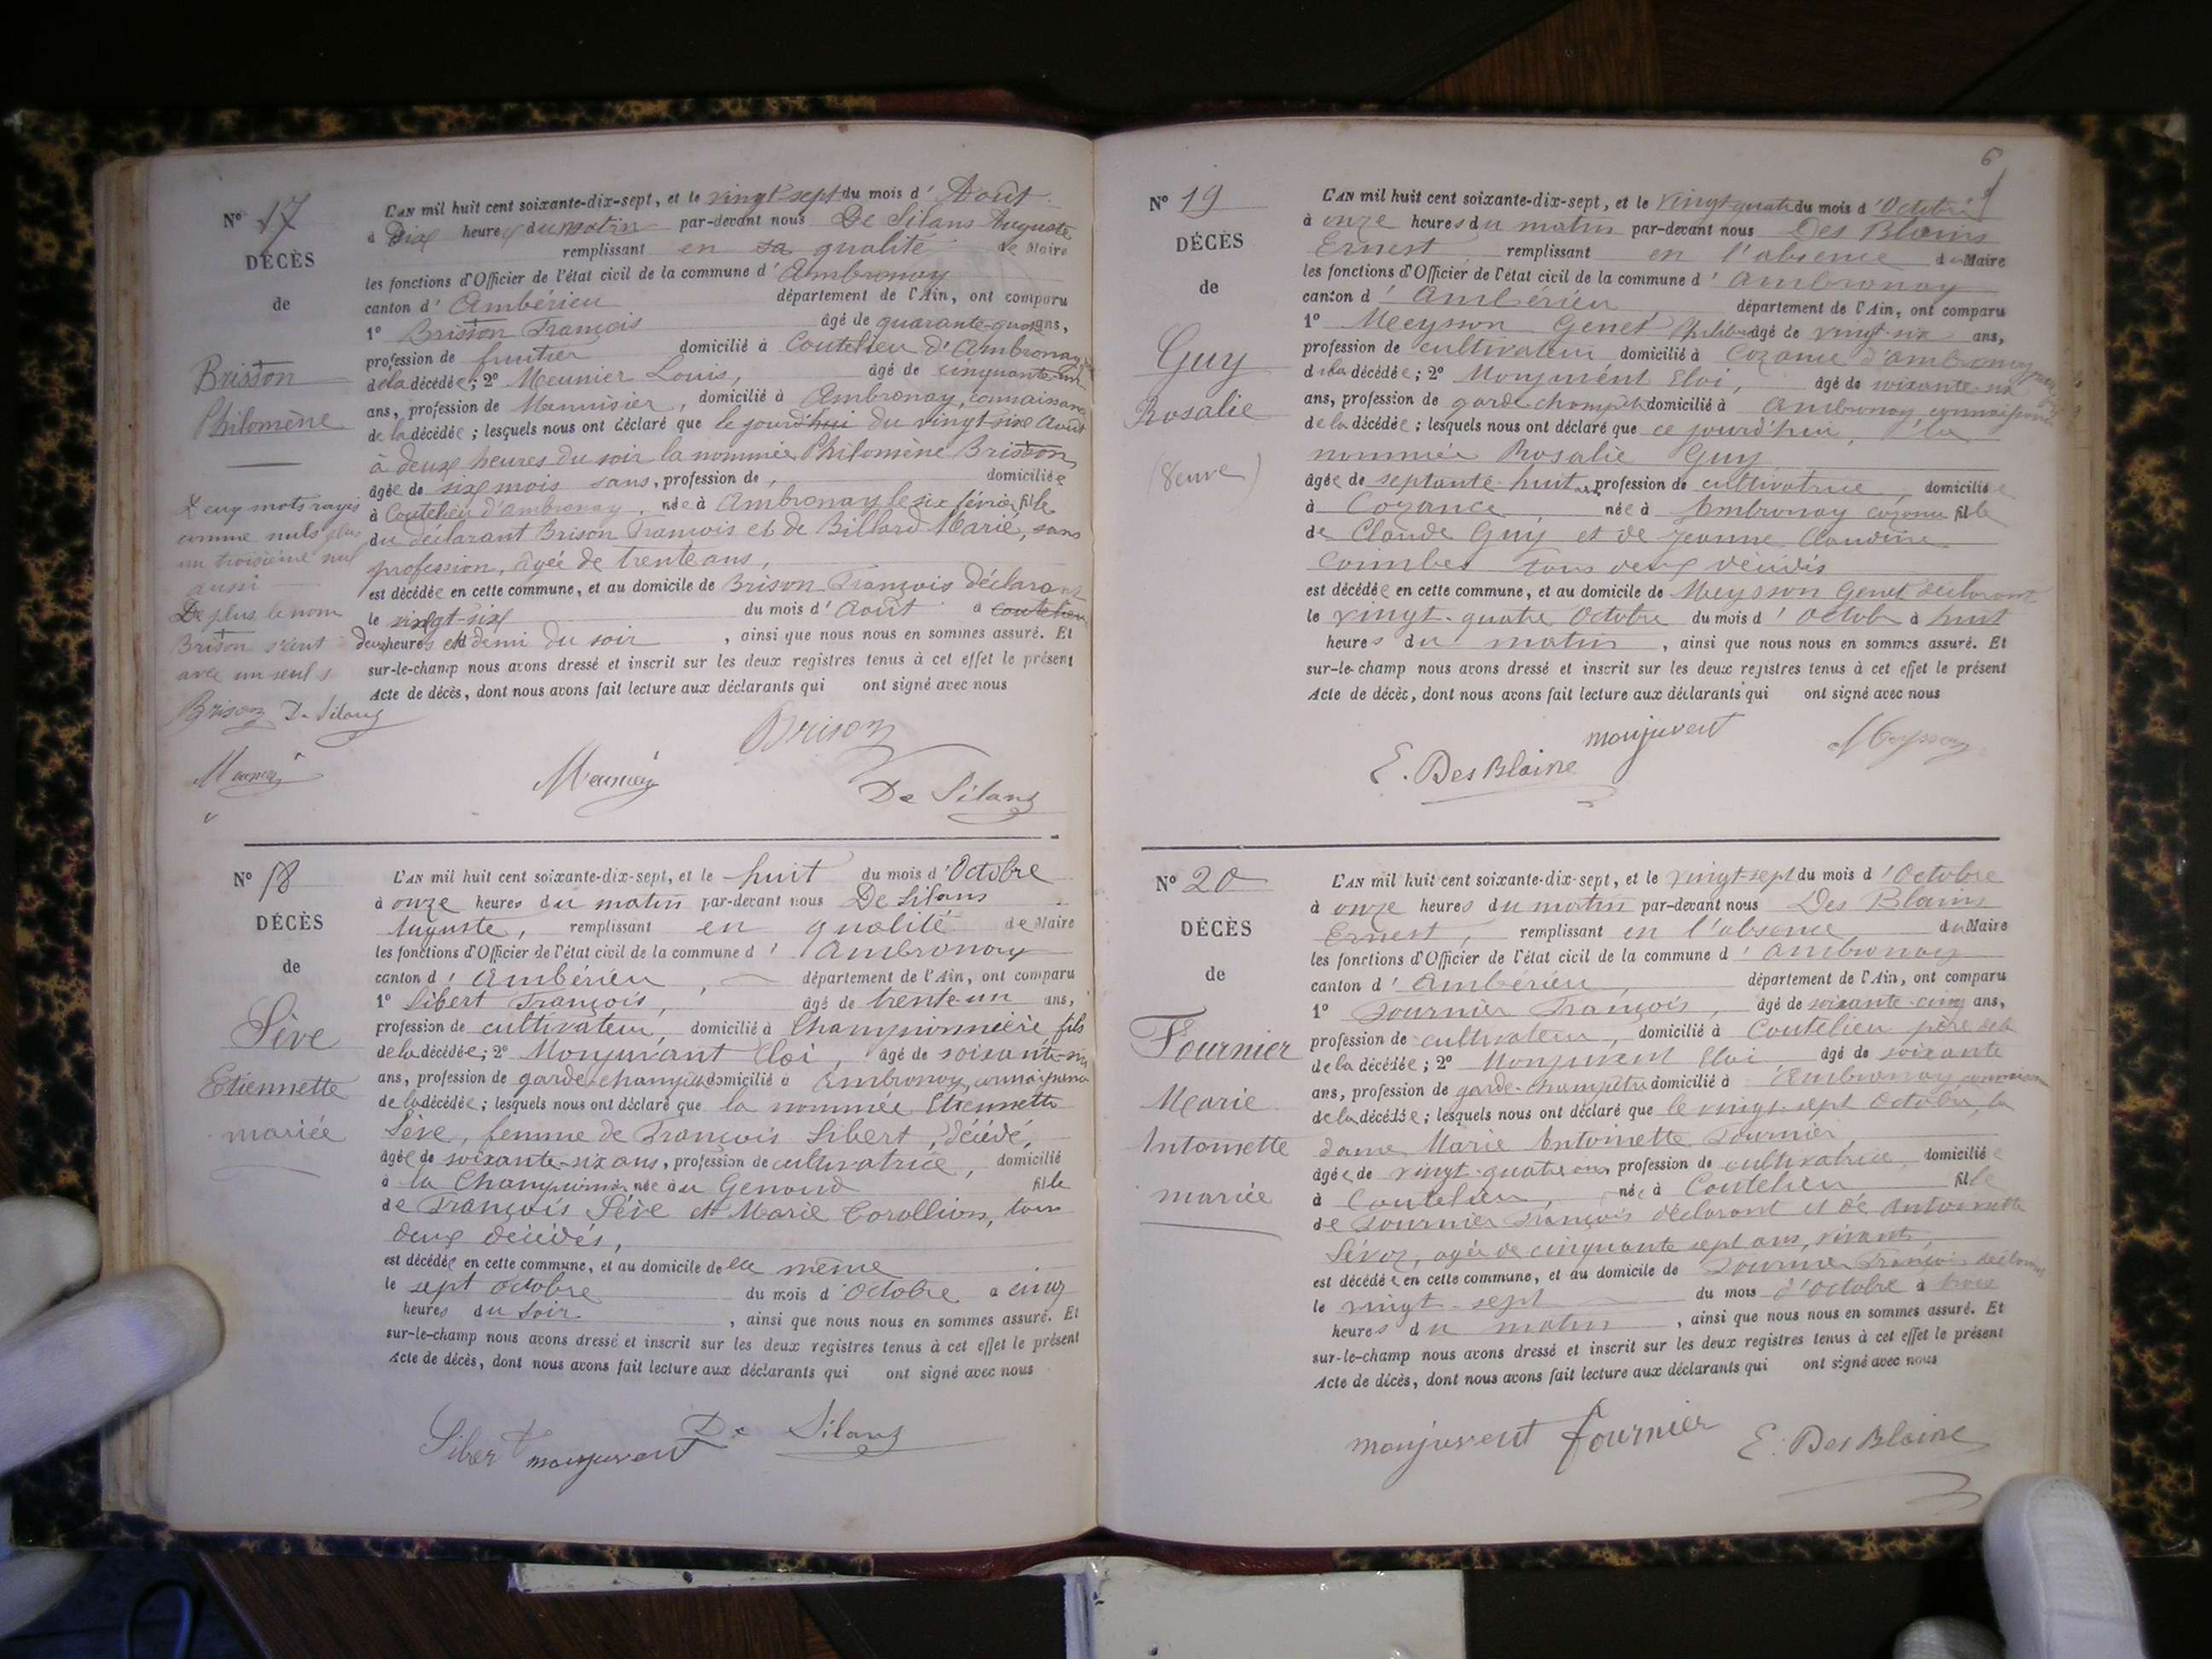 N° 17
DÉCÈS
de
Brisson
Philomène
Deux mots rayés
comme nuls plus
un troisième nul
aussi
De plus le nom
Brison s'écrit
avec un seul s
Brison De Silans
L'AN mil huit cent soixante-dix-sept, et le vingt sept du mois d'Août
à Dix heures du matin par-devant nous De Silans Auguste
remplissant en sa qualité de Maire
les fonctions d'Officier de l'état civil de la commune d'Ambronay
canton d'Ambérieu département de l'Ain, ont comparu
1° Brisson François âgé de quarante-quatre ans,
profession de fruitier domicilié à Coutelieu d'Ambronay
de la décédée; 2° Meunier Louis, âgé de cinquante-un
ans, profession de Menuisier, domicilié à Ambronay, connaissance
de la décédée; lesquels nous ont déclaré que le jourd'hui du vingt six Août
à deux heures du soir la nommée Philomène Brisson
âgée de six mois sans, profession de, domiciliée
à Coutelieu d'Ambronay, née à Ambronay le six février fille
du déclarant Brison François et de Billard Marie, sans
profession, âgée de trente ans,
est décédée en cette commune, et au domicile de Brison François déclarant
le vingt-six du mois d'Août à Coutelieu
deux heures et demi du soir, ainsi que nous nous en sommes assuré. Et
sur-le-champ nous avons dressé et inscrit sur les deux registres tenus à cet effet le présent
Acte de décès, dont nous avons fait lecture aux déclarants qui ont signé avec nous
Brison
De Silans
N° 18
DÉCÈS
de
Sève
Etiennette
mariée
L'AN mil huit cent soixante-dix-sept, et le huit du mois d'Octobre
à onze heures du matin par-devant nous De Silans
Auguste, remplissant en qualité de Maire
les fonctions d'Officier de l'état civil de la commune d'Ambronay
canton d'Ambérieu, département de l'Ain, ont comparu
1° Sibert François, âgé de trente-un ans,
profession de cultivateur, domicilié à Championnière fils
de la décédée; 2° Monjuvant Eloi, âgé de soixante-six
ans, profession de garde-champêtre domicilié à Ambronay, connaissance
de la décédée; lesquels nous ont déclaré que la nommée Etiennette
Sève, femme de François Sibert, décédé,
âgée de soixante-six ans, profession de cultivatrice, domicilié
à la née au Genoud fille
de François Sève et Marie Corollion, tous
deux décédés,
est décédée en cette commune, et au domicile de elle même
le sept octobre du mois d'Octobre à cinq
heures du soir, ainsi que nous nous en sommes assuré. Et
sur-le-champ nous avons dressé et inscrit sur les deux registres tenus à cet effet le présent
Acte de décès, dont nous avons fait lecture aux déclarants qui ont signé avec nous
Sibert monjuvent De Silans
6
N° 19
DÉCÈS
de
Guy
Rosalie
(Veuve)
L'AN mil huit cent soixante-dix-sept, et le vingt quatre du mois d'Octobre
à onze heures du matin par-devant nous Des Blains
Ernest remplissant en l'absence du Maire
les fonctions d'Officier de l'état civil de la commune d'Ambronay
canton d'Ambérieu, département de l'Ain, ont comparu
1° Meysson Genet âgé de vingt-six ans,
profession de cultivateur domicilié à Cozance d'Ambronay
de la décédée; 2° Monjuvent Eloi, âgé de soixante-six
ans, profession de garde champêtre domicilié à Ambronay connaissance
de la décédée; lesquels nous ont déclaré que ce jourd'hui, la
nommée Rosalie Guy
âgée de septante-huit ans profession de cultivatrice, domiciliée
à Cozance née à Ambronay cozance fille
de Claude Guy et de Jeanne Claudine
tous deux décédés
est décédée en cette commune, et au domicile de Meysson Genet déclarant
le vingt-quatre Octobre du mois d'Octobre à huit
heures du matin, ainsi que nous nous en sommes assuré. Et
sur-le-champ nous avons dressé et inscrit sur les deux registres tenus à cet effet le présent
Acte de décès, dont nous avons fait lecture aux déclarants qui ont signé avec nous
monjuvent Meysson
E. Des Blains
N° 20
DÉCÈS
de
Fournier
Marie
Antoinette
mariée
L'AN mil huit cent soixante-dix-sept, et le vingt-sept du mois d'Octobre
à onze heures du matin par-devant nous Des Blains
Ernest, remplissant en l'absence du Maire
les fonctions d'Officier de l'état civil de la commune d'Ambronay
canton d'Ambérieu, département de l'Ain, ont comparu
1° Fournier François, âgé de soixante-cinq ans,
profession de cultivateur, domicilié à Coutelieu père de la
de la décédée; 2° Monjuvent Eloi âgé de soixante
ans, profession de garde-champêtre domicilié à Ambronay
de la décédée; lesquels nous ont déclaré que le vingt-sept Octobre, la
dame Marie Antoinette Fournier,
âgée de vingt-quatre ans, profession de cultivatrice, domiciliée
à Coutelieu, née à Coutelieu fille
de Fournier François déclarant et de Antoinette
âgée de cinquante sept ans, vivants,
est décédée en cette commune, et au domicile de Fournier François déclarant
le vingt-sept du mois d'Octobre à trois
heures du matin, ainsi que nous nous en sommes assuré. Et
sur-le-champ nous avons dressé et inscrit sur les deux registres tenus à cet effet le présent
Acte de décès, dont nous avons fait lecture aux déclarants qui ont signé avec nous
monjuvent fournier E. Des Blains